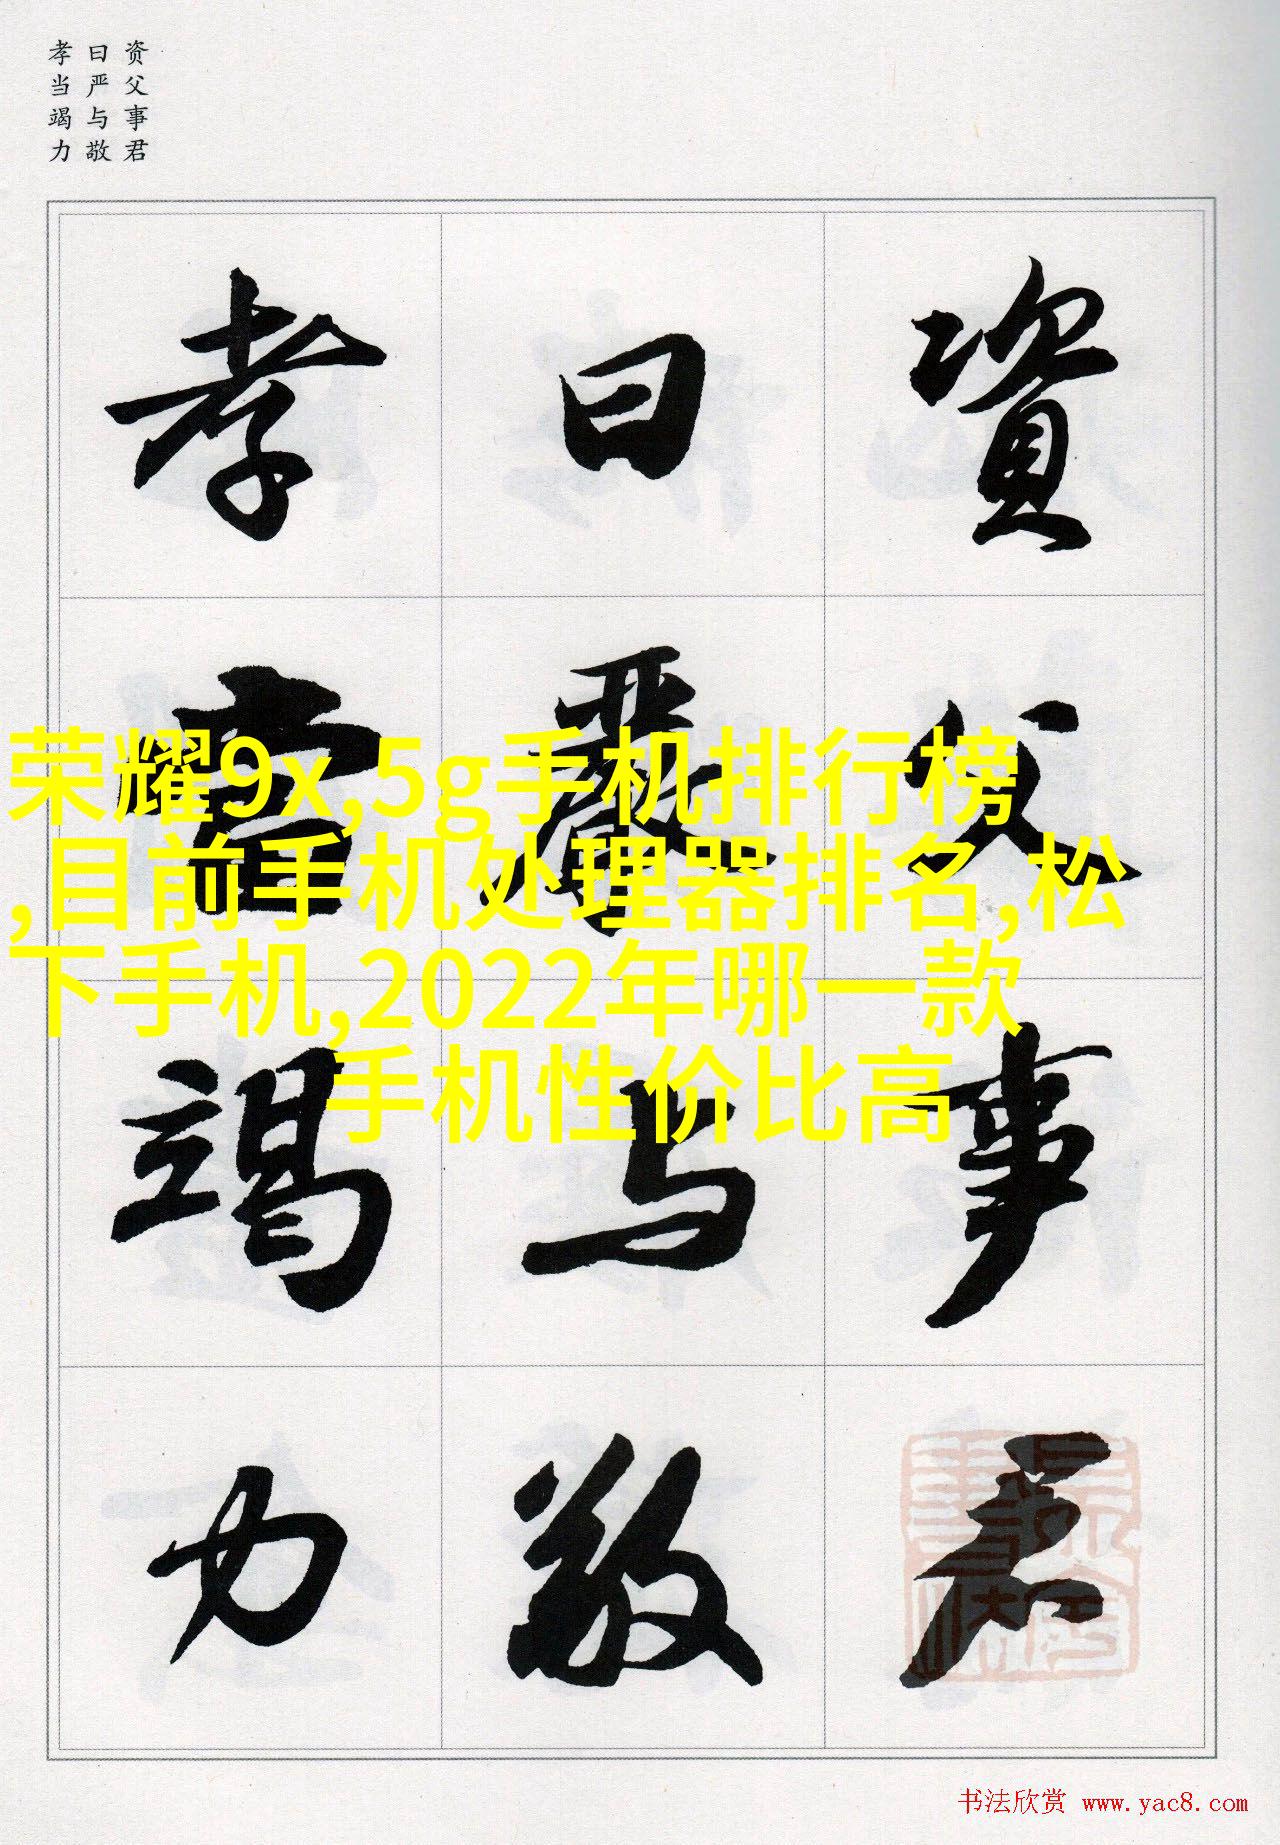 资父事君
曰严与敬
孝当竭力
資父事君
曰嚴与敬
孝當竭力
荣耀9x,5g手机排行榜
,目前手机处理器排名,松
下手机,2022年哪一款
手机性价比高
书法欣赏 www.yac8.com